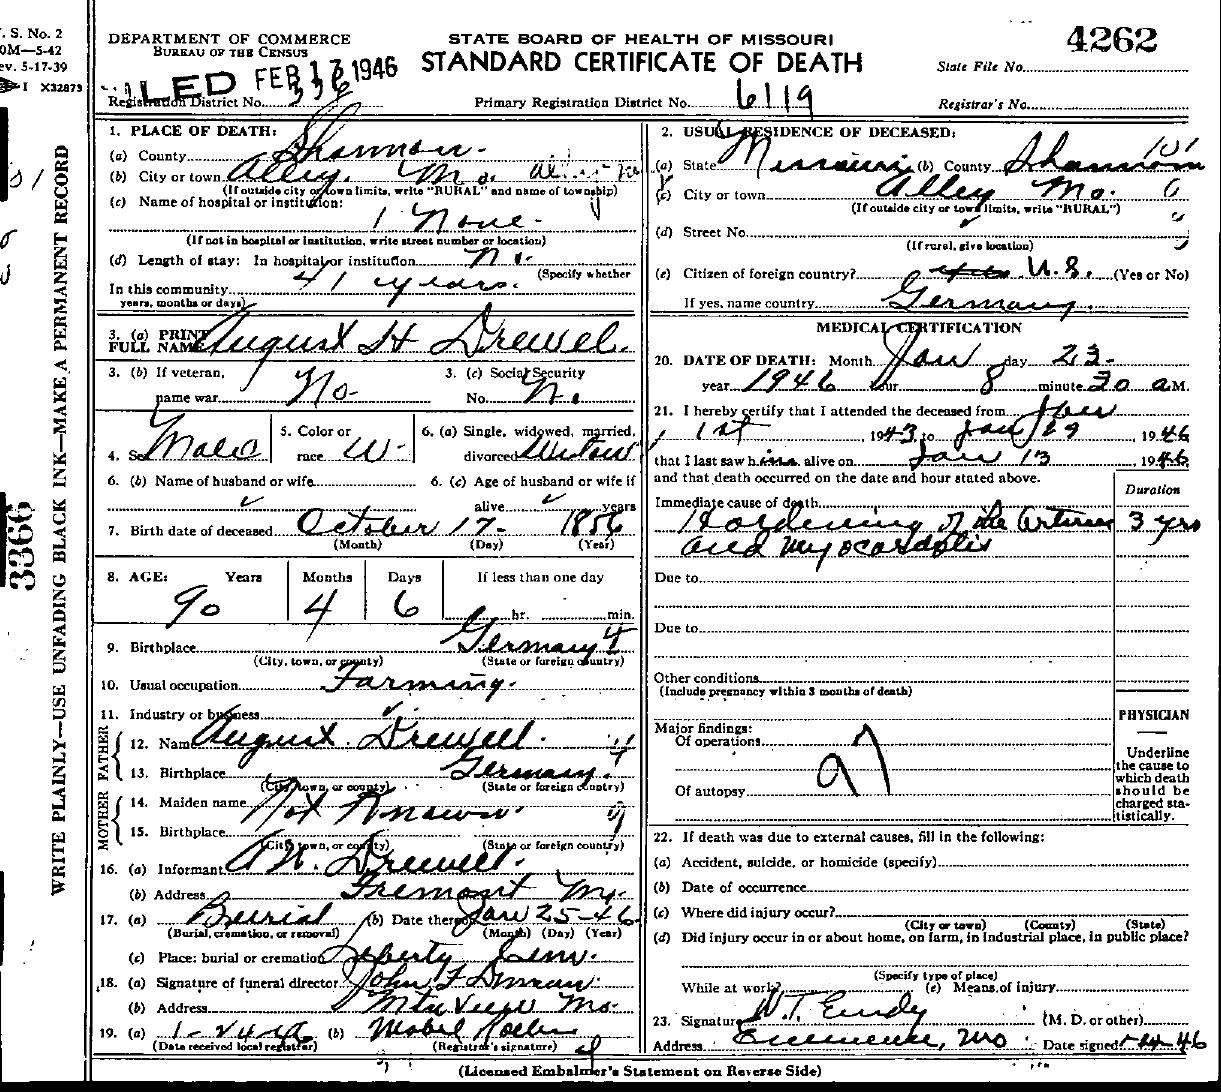 V. S. No. 2
0M—5-42
ev. 5-17-39
I X32873
DEPARTMENT OF COMMERCE
BUREAU OF THE CENSUS
FILED FEB 1946
STATE BOARD OF HEALTH OF MISSOURI
STANDARD CERTIFICATE OF DEATH
4262
State File No.
Registration District No. 336
Primary Registration District No. 6119
Registrar's No.
WRITE PLAINLY—USE UNFADING BLACK INK—MAKE A PERMANENT RECORD
3366
1. PLACE OF DEATH:
(a) County Shannon.
(b) City or town Alley, Mo.
(If outside city or town limits, write "RURAL" and name of township)
(c) Name of hospital or institution:
None
(If not in hospital or institution, write street number or location)
(d) Length of stay: In hospital or institution no.
(Specify whether
In this community 41 years.
years, months or days)
3. (a) PRINT
FULL NAME August H Drewel.
3. (b) If veteran,
name war No-
3. (c) Social Security
No. No
4. Sex Male
5. Color or
race W-
6. (a) Single, widowed, married,
divorced
6. (b) Name of husband or wife
6. (c) Age of husband or wife if
alive years
7. Birth date of deceased October 17- 1856
(Month) (Day) (Year)
8. AGE: Years Months Days If less than one day
90 4 6 hr. min.
9. Birthplace Germany
(City, town, or county) (State or foreign country)
10. Usual occupation Farming.
11. Industry or business
FATHER
12. Name August Drewell.
13. Birthplace Germany.
(City, town, or county) (State or foreign country)
MOTHER
14. Maiden name Not Known
15. Birthplace
(City, town, or county) (State or foreign country)
16. (a) Informant A H. Drewell.
(b) Address Fremont Mo.
17. (a) Burial (b) Date thereof Jan 25-46
(Burial, cremation, or removal) (Month) (Day) (Year)
(c) Place: burial or cremation Liberty Cem.
18. (a) Signature of funeral director John F Duncan
(b) Address Mtn View Mo.
19. (a) 1-24-46 (b) Mabel
(Data received local registrar) (Registrar's signature)
2. USUAL RESIDENCE OF DECEASED:
(a) State Missouri (b) County Shannon
(c) City or town Alley Mo.
(If outside city or town limits, write "RURAL")
(d) Street No.
(If rural, give location)
(e) Citizen of foreign country? U.S. (Yes or No)
If yes, name country Germany.
MEDICAL CERTIFICATION
20. DATE OF DEATH: Month Jan day 23-
year 1946 hour 8 minute 30 a M.
21. I hereby certify that I attended the deceased from
1st 1943 to Jan 19 1946
that I last saw him alive on Jan 13 1946
and that death occurred on the date and hour stated above.
Duration
Immediate cause of death
Hardening of the Arteries 3 yrs
and Myocarditis
Due to
Due to
Other conditions
(Include pregnancy within 3 months of death)
Major findings:
Of operations
97
Of autopsy
PHYSICIAN
Underline
the cause to
which death
should be
charged sta-
tistically.
22. If death was due to external causes, fill in the following:
(a) Accident, suicide, or homicide (specify)
(b) Date of occurrence
(c) Where did injury occur?
(City or town) (County) (State)
(d) Did injury occur in or about home, on farm, in industrial place, in public place?
(Specify type of place)
While at work? (e) Means of injury
23. Signature W.T. Eudy (M. D. or other)
Address Eminence, Mo Date signed 1-24-46
(Licensed Embalmer's Statement on Reverse Side)